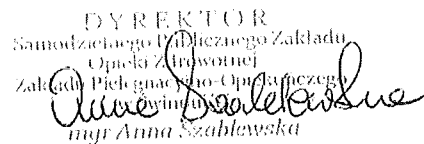 DYREKTOR
Samodzielnego Publicznego Zakładu
Opieki Zdrowotnej
Zakładu Pielęgnacyjno-Opiekuńczego
mgr Anna Szablewska